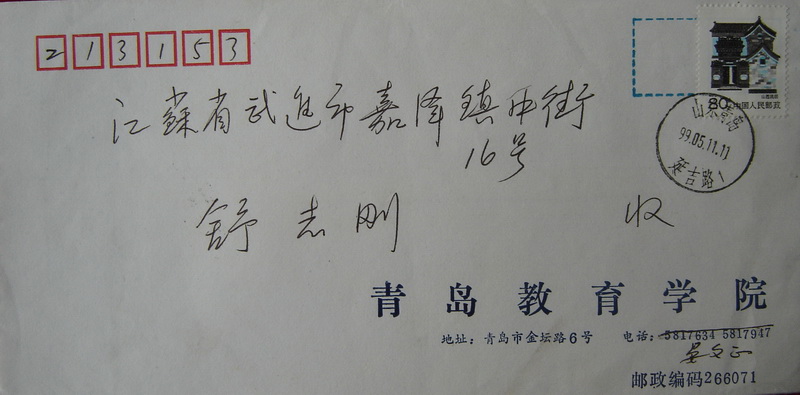 213153
江蘇省武进市嘉泽镇中街
16号
舒志刚 收
80 中国人民邮政
山东青岛
99.05.11.11
延吉路1
青岛教育学院
地址：青岛市金坛路6号 电话：5817634 5817947
邮政编码266071